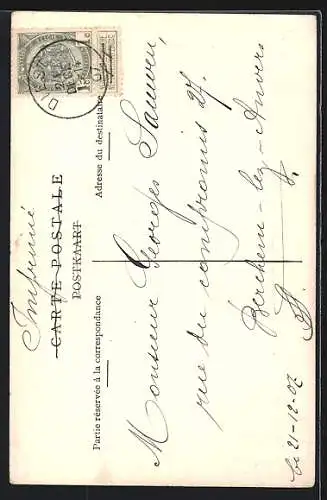 Imprimé
CARTE POSTALE
POSTKAART
Partie réservée à la correspondance
Adresse du destinataire
DIEST
Monsieur Georges Sauwen,
rue du compromis 27.
Berchem-lez-Anvers
le 21-12-07